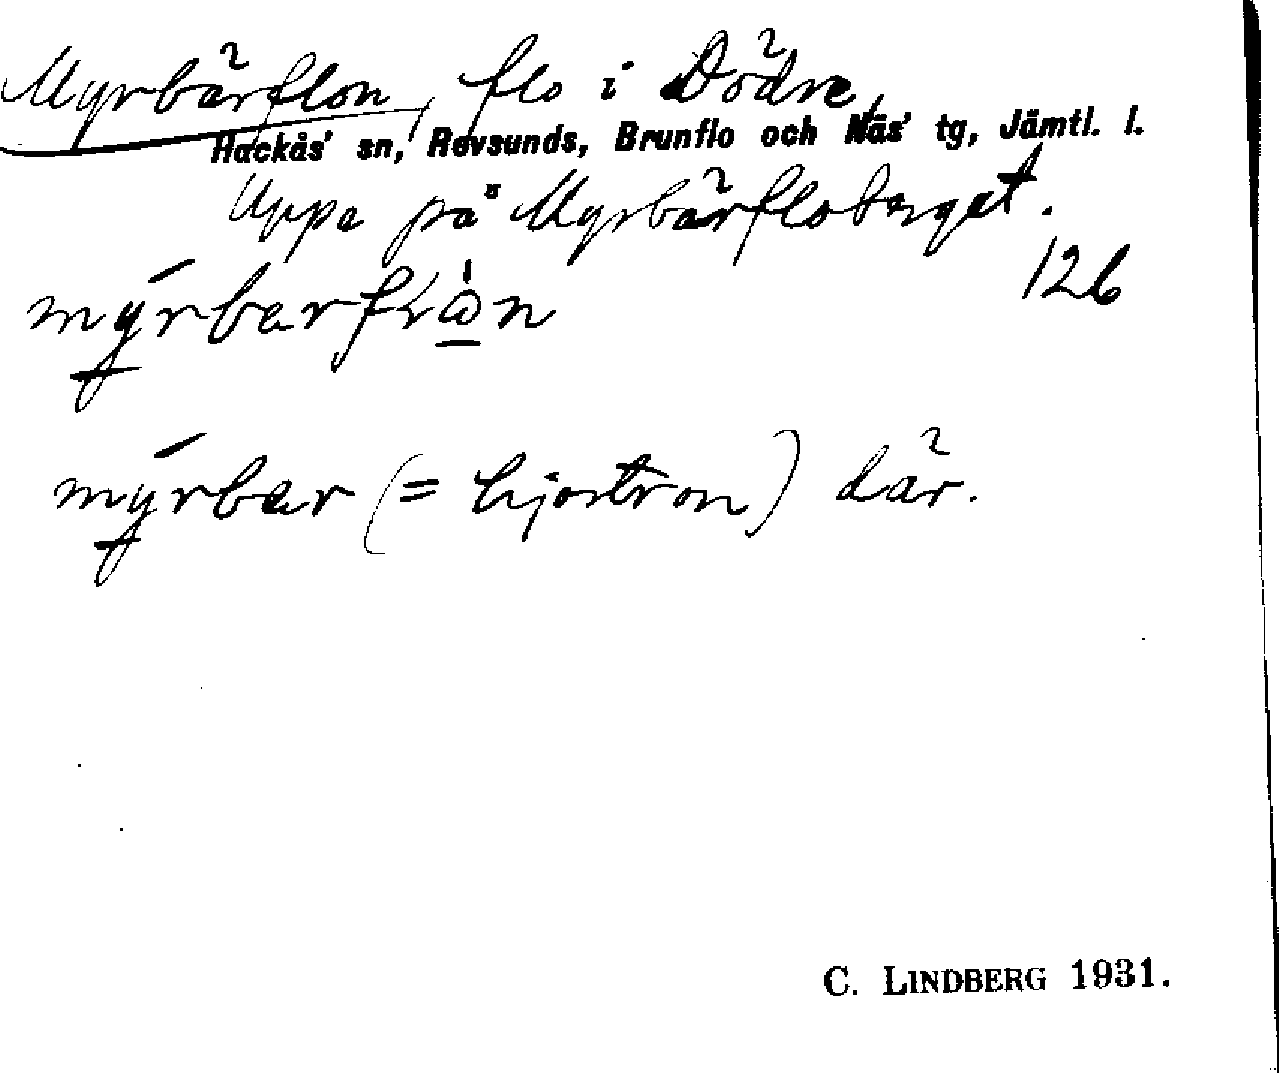 Myrbärflon, flo i Dödre,
Hackås' sn, Revsunds, Brunflo och Näs' tg, Jämtl. l.
Uppe på Myrbärfloberget.
126
mýrbarflọ̀n
mýrbar (= hjortron) där.
C. LINDBERG 1931.